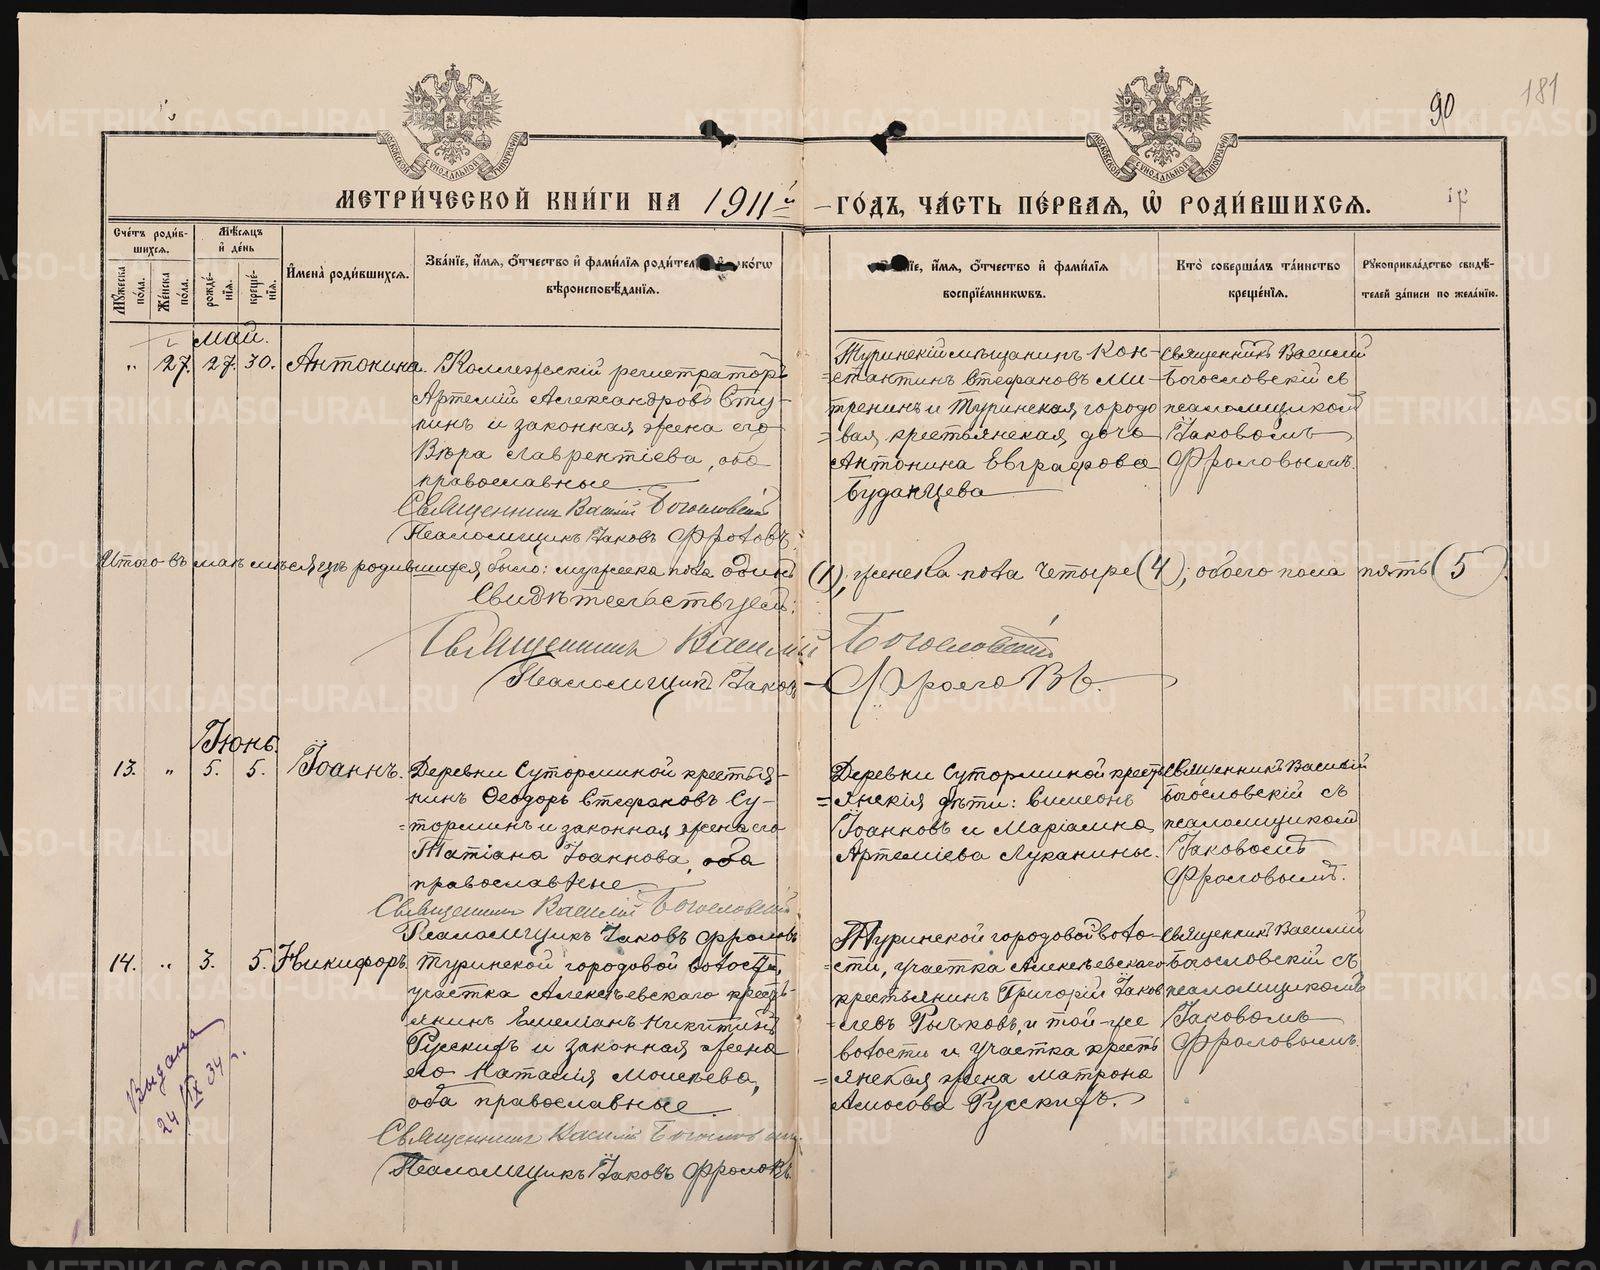 90
181
МЕТРИ́ЧЕСКОЙ КНИ́ГИ НА 1911й ГО́ДЪ, ЧА́СТЬ ПЕ́РВАЯ, Ѡ҆ РОДИ́ВШИХСЯ.
Сче́тъ роди́в-
шихся.
Мꙋ́жеска по́ла.
Же́нска по́ла.
Мѣ́сяцъ
и҆ де́нь
рожде́-
нїя.
креще́-
нїя.
И҆мена̀ роди́вшихся.
Зва́нїе, и҆́мя, ѻ҆́тчество и҆ фами́лїя родител
вѣроисповѣ́данїя.
и҆́мя, ѻ҆́тчество и҆ фами́лїя
воспрїе́мникωвъ.
Кто̀ соверша́лъ та́инство
креще́нїя.
Рꙋкоприкла́дство свидѣ́-
телей за́писи по жела́нїю.
Май.
„ 27. 27. 30. Антонина.
Коллежскій регистраторъ
Артемій Александровъ Сту-
пинъ и законная жена его
Вѣра Лаврентіева, оба
православные.
Священникъ Василій Богословскій
Псаломщикъ Іаковъ Фроловъ
Туринскій мѣщанинъ Кон-
стантинъ Стефановъ Ми-
тренинъ и Туринская городо
вая крестьянская дочь
Антонина Евграфова
Буданцева
Священникъ Василій
Богословскій съ
псаломщикомъ
Іаковомъ
Фроловымъ.
Итого въ маѣ мѣсяцѣ родившихся было: мужеска пола одинъ (1); женска пола четыре (4); обоего пола пять (5).
Свидѣтельствуемъ:
Священникъ Василій Богословскій
Псаломщикъ Іаковъ Фроловъ.
Іюнь.
13. „ 5. 5. Іоаннъ.
Деревни Суторминой крестья-
нинъ Ѳеодоръ Стефановъ Су-
торминъ и законная жена его
Татіана Іоаннова, оба
православные
Священникъ Василій Богословскій
Псаломщикъ Іаковъ Фроловъ
Деревни Суторминой кресть
янскія дѣти: Симеонъ
Іоанновъ и Маріамна
Артеміева Луканины.
Священникъ Василій
Богословскій съ
псаломщикомъ
Іаковомъ
Фроловымъ.
14. „ 3. 5. Никифоръ.
Туринской городовой волости,
участка Алексѣевскаго кресть
янинъ Емеліанъ Никитинъ
Русскихъ и законная жена
его Наталія Моисѣева,
оба православные.
Священникъ Василій Богословскій
Псаломщикъ Іаковъ Фроловъ.
Туринской городовой воло-
сти, участка Алексѣевскаго
крестьянинъ Григорій Іаков
левъ Рычковъ, и той-же
волости и участка кресть
янская жена Матрона
Амосова Русскихъ.
Священникъ Василій
Богословскій съ
псаломщикомъ
Іаковомъ
Фроловымъ.
Выдана
24/IX 34 г.
METRIKI.GASO-URAL.RU